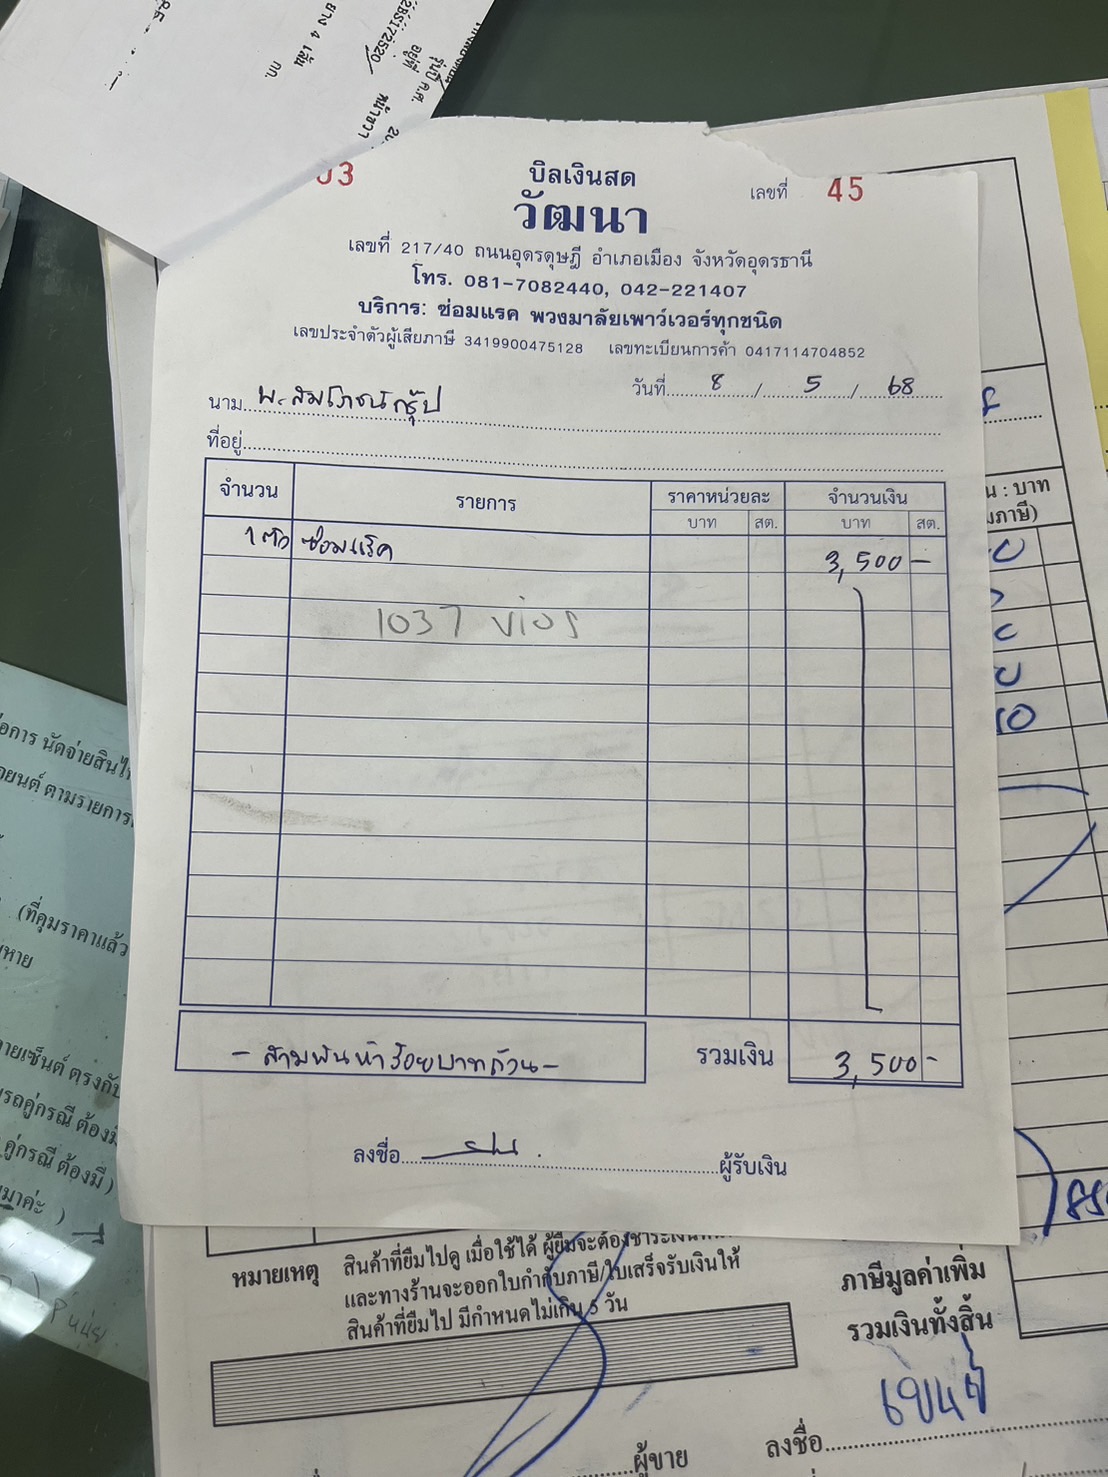 ยาง 4 เส้น
กก.
หน้าขวา
03
บิลเงินสด
เลขที่ 45
วัฒนา
เลขที่ 217/40 ถนนอุดรดุษฎี อำเภอเมือง จังหวัดอุดรธานี
โทร. 081-7082440, 042-221407
บริการ: ซ่อมแรค พวงมาลัยเพาว์เวอร์ทุกชนิด
เลขประจำตัวผู้เสียภาษี 3419900475128 เลขทะเบียนการค้า 0417114704852
วันที่ 8 / 5 / 68
นาม พ.สัมโภชน์กรุ๊ป
ที่อยู่
จำนวน รายการ ราคาหน่วยละ จำนวนเงิน
บาท สต. บาท สต.
1 ตัว ซ่อมแร็ค 3,500 -
1037 vios
- สามพันห้าร้อยบาทถ้วน - รวมเงิน 3,500 -
ลงชื่อ ผู้รับเงิน
น : บาท
ภาษี)
(ที่คุมราคาแล้ว
หมายเหตุ สินค้าที่ยืมไปดู เมื่อใช้ได้ ผู้ยืมจะต้องชำระเงิน
และทางร้านจะออกใบกำกับภาษี/ใบเสร็จรับเงินให้
สินค้าที่ยืมไป มีกำหนดไม่เกิน 5 วัน
ภาษีมูลค่าเพิ่ม
รวมเงินทั้งสิ้น
ผู้ขาย ลงชื่อ